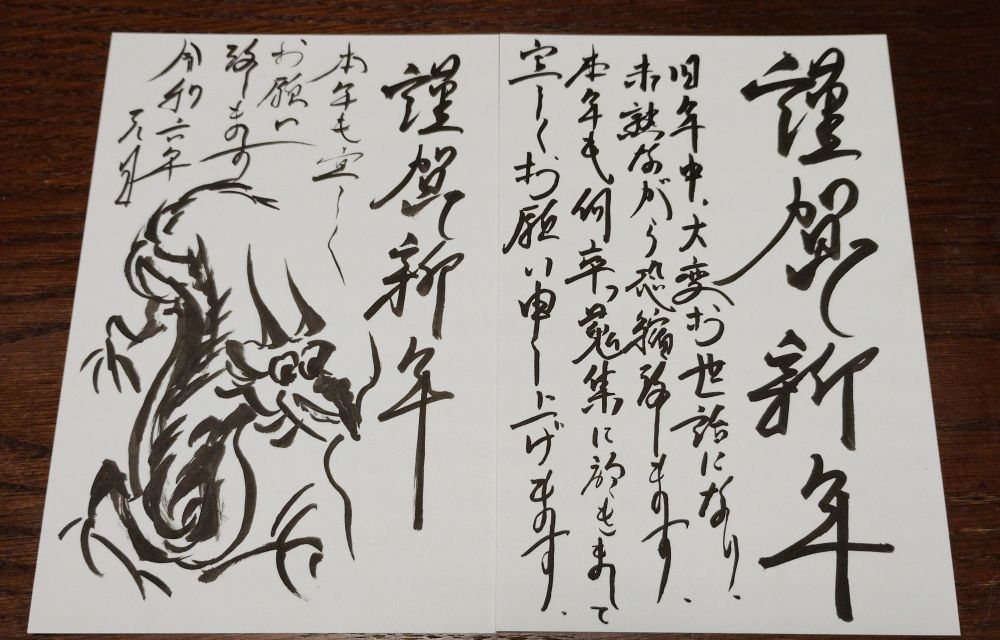 謹賀新年
旧年中、大変お世話になり、
未熟ながら恐縮致します、
本年も何卒蒐集に於きまして
宜しくお願い申し上げます、
謹賀新年
本年も宜しく
お願い
致します
令和六年
元旦